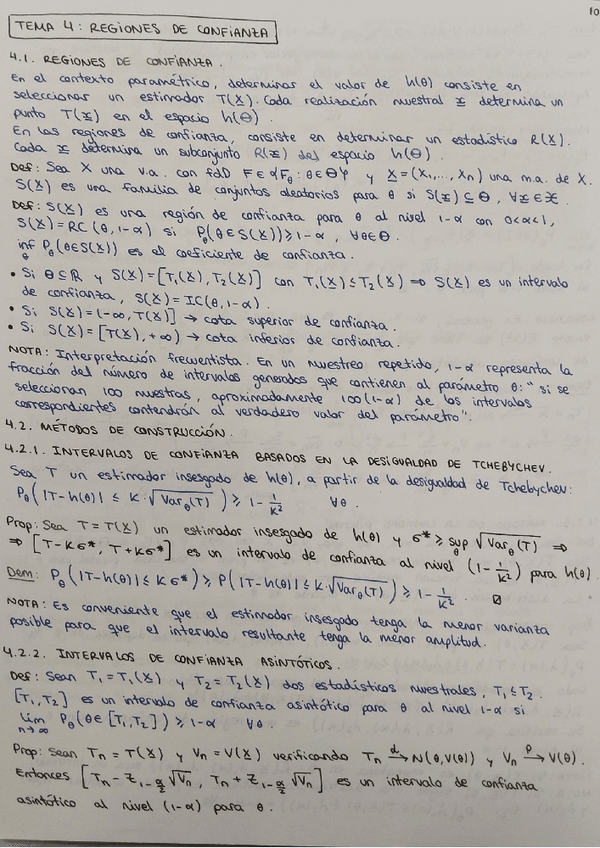 10
TEMA 4: REGIONES DE CONFIANZA
4.1. REGIONES DE CONFIANZA.
En el contexto paramétrico, determinar el valor de h(θ) consiste en
seleccionar un estimador T(X). Cada realización muestral x determina un
punto T(x) en el espacio h(Θ).
En las regiones de confianza, consiste en determinar un estadístico R(X).
Cada x determina un subconjunto R(x) del espacio h(Θ).
Def: Sea X una v.a. con fdD F∈{F_θ: θ∈Θ} y X=(X₁,..., Xₙ) una m.a. de X.
S(X) es una familia de conjuntos aleatorios para θ si S(x)⊆Θ, ∀x∈𝒳.
Def: S(X) es una región de confianza para θ al nivel 1-α con 0<α<1,
S(X)=RC(θ,1-α) si P_θ(θ∈S(X))≥1-α, ∀θ∈Θ.
inf_θ P_θ(θ∈S(X)) es el coeficiente de confianza.
• Si Θ⊆ℝ y S(X)=[T₁(X),T₂(X)] con T₁(X)≤T₂(X) ⇒ S(X) es un intervalo
de confianza, S(X)=IC(θ,1-α).
• Si S(X)=(-∞,T(X)] → cota superior de confianza.
• Si S(X)=[T(X),+∞) → cota inferios de confianza.
NOTA: Interpretación frecuentista. En un muestreo repetido, 1-α representa la
fracción del número de intervalos generados que contienen al parámetro θ: "si se
seleccionan 100 muestras, aproximadamente 100(1-α) de los intervalos
correspondientes contendrán al verdadero valor del parámetro".
4.2. MÉTODOS DE CONSTRUCCIÓN.
4.2.1. INTERVALOS DE CONFIANZA BASADOS EN LA DESIGUALDAD DE TCHEBYCHEV.
Sea T un estimador insesgado de h(θ), a partir de la desigualdad de Tchebychev:
P_θ(|T-h(θ)| ≤ K·√Var_θ(T)) ≥ 1-1/K² ∀θ.
Prop: Sea T=T(X) un estimador insesgado de h(θ) y σ* ≥ sup_θ √Var_θ(T) ⇒
⇒ [T-Kσ*, T+Kσ*] es un intervalo de confianza al nivel (1-1/K²) para h(θ).
Dem: P_θ(|T-h(θ)|≤Kσ*) ≥ P(|T-h(θ)|≤K·√Var_θ(T)) ≥ 1-1/K².
NOTA: Es conveniente que el estimador insesgado tenga la menor varianza
posible para que el intervalo resultante tenga la menor amplitud.
4.2.2. INTERVALOS DE CONFIANZA ASINTÓTICOS.
Def: Sean T₁=T₁(X) y T₂=T₂(X) dos estadísticos muestrales, T₁≤T₂.
[T₁,T₂] es un intervalo de confianza asintótico para θ al nivel 1-α si
lim_{n→∞} P_θ(θ∈[T₁,T₂]) ≥ 1-α ∀θ.
Prop: Sean Tₙ=T(X) y Vₙ=V(X) verificando Tₙ →ᵈ N(θ,V(θ)) y Vₙ →ᴾ V(θ).
Entonces [Tₙ-Z_{1-α/2}√Vₙ, Tₙ+Z_{1-α/2}√Vₙ] es un intervalo de confianza
asintótico al nivel (1-α) para θ.